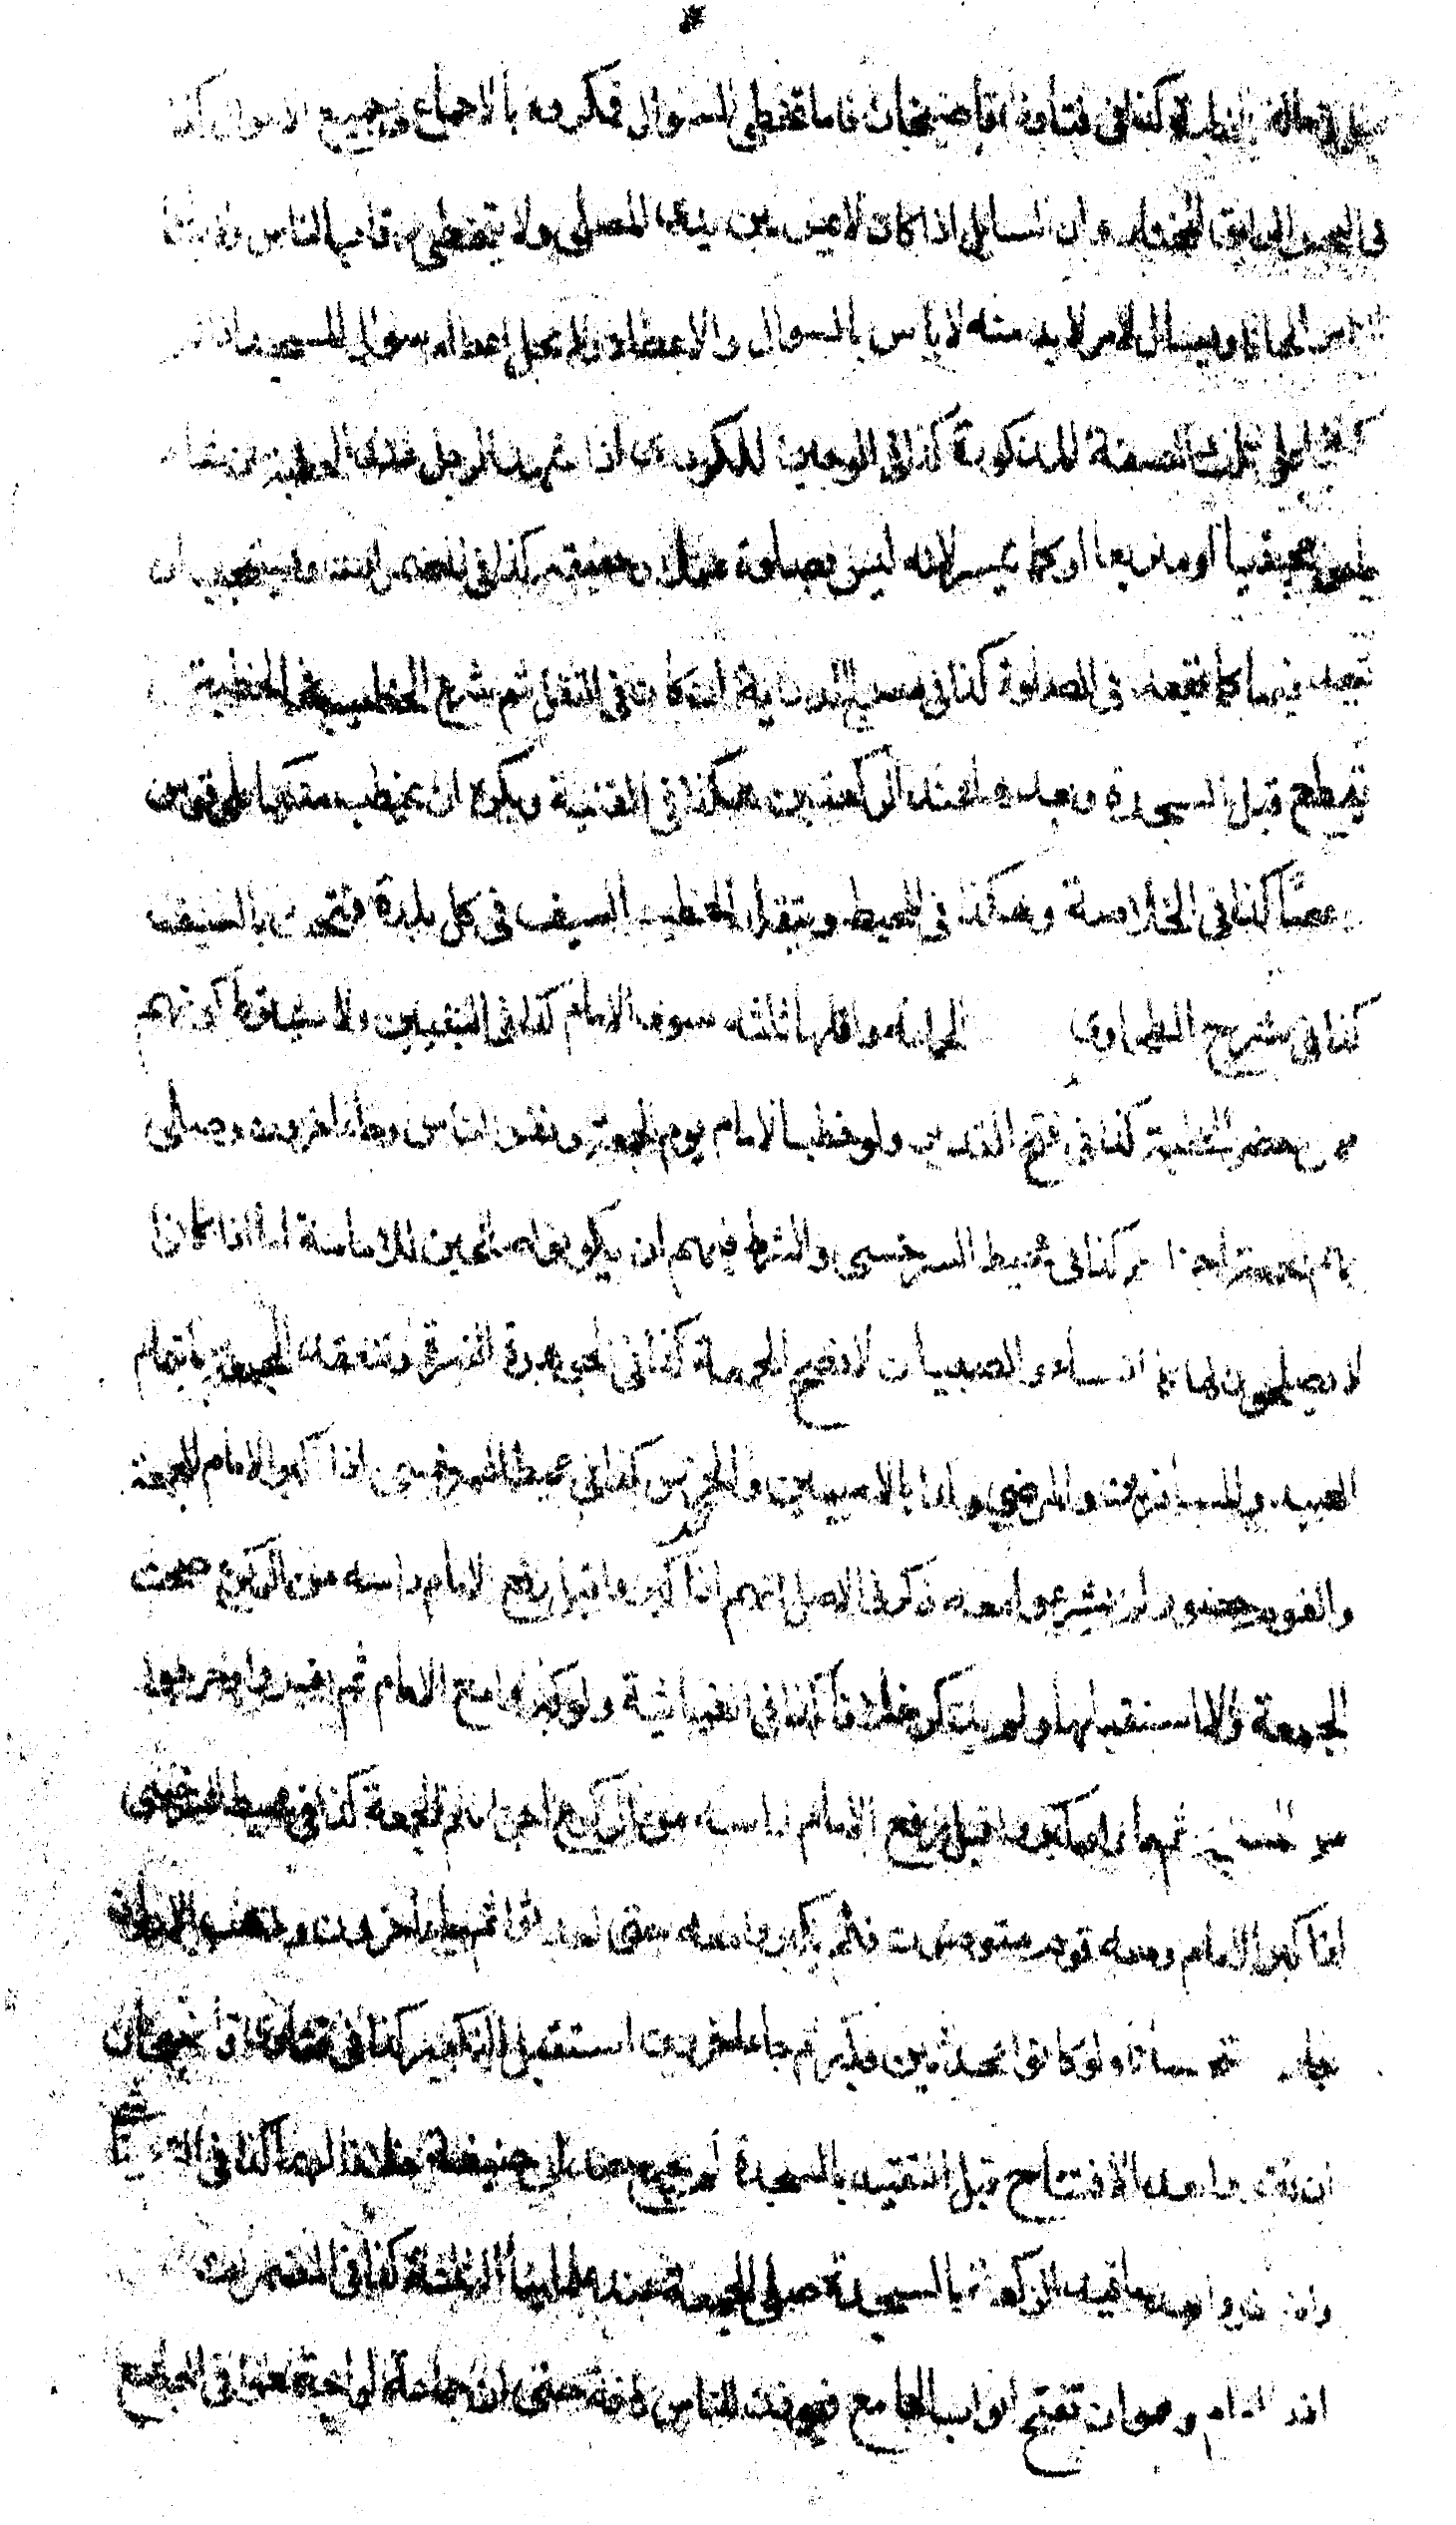 كذا في فتاوى قاضيخان فاما تخطي السوال فمكروه بالاجماع في جميع الاحوال كذا
في البحر الرايق المختار ان السايل اذا كان لا يمر بين يدي المصلي ولا يتخطى رقاب الناس ولا يسال
الناس الحافا ويسال لامر لا بد منه لا باس بالسوال والاعطاء ولا يحل اعطاء سوال المسجد اذا لم
يكونوا على تلك الصفة المذكورة كذا في الوجيز للكردري اذا شهد الرجل عند الخطبة ان شاء
جلس محتبيا او متربعا او كما تيسر لانه ليس بصلوة عملا وحقيقة كذا في المضمرات ويستحب ان
يقعد فيها كما يقعد في الصلوة كذا في معراج الدراية ان كان في النفل ثم شرع الخطيب في الخطبة
يقطع قبل السجدة وبعدها عند الركعتين هكذا في القنية ويكره ان يخطب متكيا على قوس
او عصا كذا في الخلاصة وهكذا في المحيط ويتقلد الخطيب السيف في كل بلدة فتحت بالسيف
كذا في شرح الطحاوي الجماعة واقلها ثلثة سوى الامام كذا في التبيين ولا يشترط كونهم
ممن حضر الخطبة كذا في فتح القدير ولو خطب الامام يوم الجمعة ونفر الناس وجاء اخرون وصلى
بهم الجمعة اجزاهم كذا في محيط السرخسي والشرط فيهم ان يكونوا صالحين للامامة اما اذا كانوا
لا يصلحون لها كالنساء والصبيان لا تصح الجمعة كذا في الجوهرة النيرة وتنعقد الجمعة باتمام
العبيد والمسافرين والمرضى وكذا بالاميين والخرس كذا في محيط السرخسي اذا كبر الامام للجمعة
والقوم حضور لم يشرعوا معه ذكر في الاصل انهم اذا كبروا قبل رفع الامام راسه من الركوع صحت
الجمعة والا استقبلها ولم يذكر خلافا كذا في الغياثية ولو كبروا مع الامام ثم نفروا وخرجوا
من المسجد ثم جاؤا وكبروا قبل رفع الامام راسه من الركوع اجزاتهم الجمعة كذا في محيط السرخسي
اذا كبر الامام ومعه قوم متوضؤن فلم يكبروا معه حتى احدثوا ثم جاء اخرون وذهب الاولون
جاز استحسانا ولو كانوا محدثين فكبر ثم جاء اخرون استقبل التكبير كذا في فتاوى قاضيخان
ان نفروا بعد الافتتاح قبل التقييد بالسجدة لم يجمع عند ابي حنيفة خلافا لهما كذا في
وان نفروا بعد ما قيد الركعة بالسجدة صلى الجمعة عند علمائنا الثلثة كذا في المضمرات
الاذن العام وهو ان تفتح ابواب الجامع فيوذن للناس كافة حتى ان جماعة لو اجتمعوا في الجامع